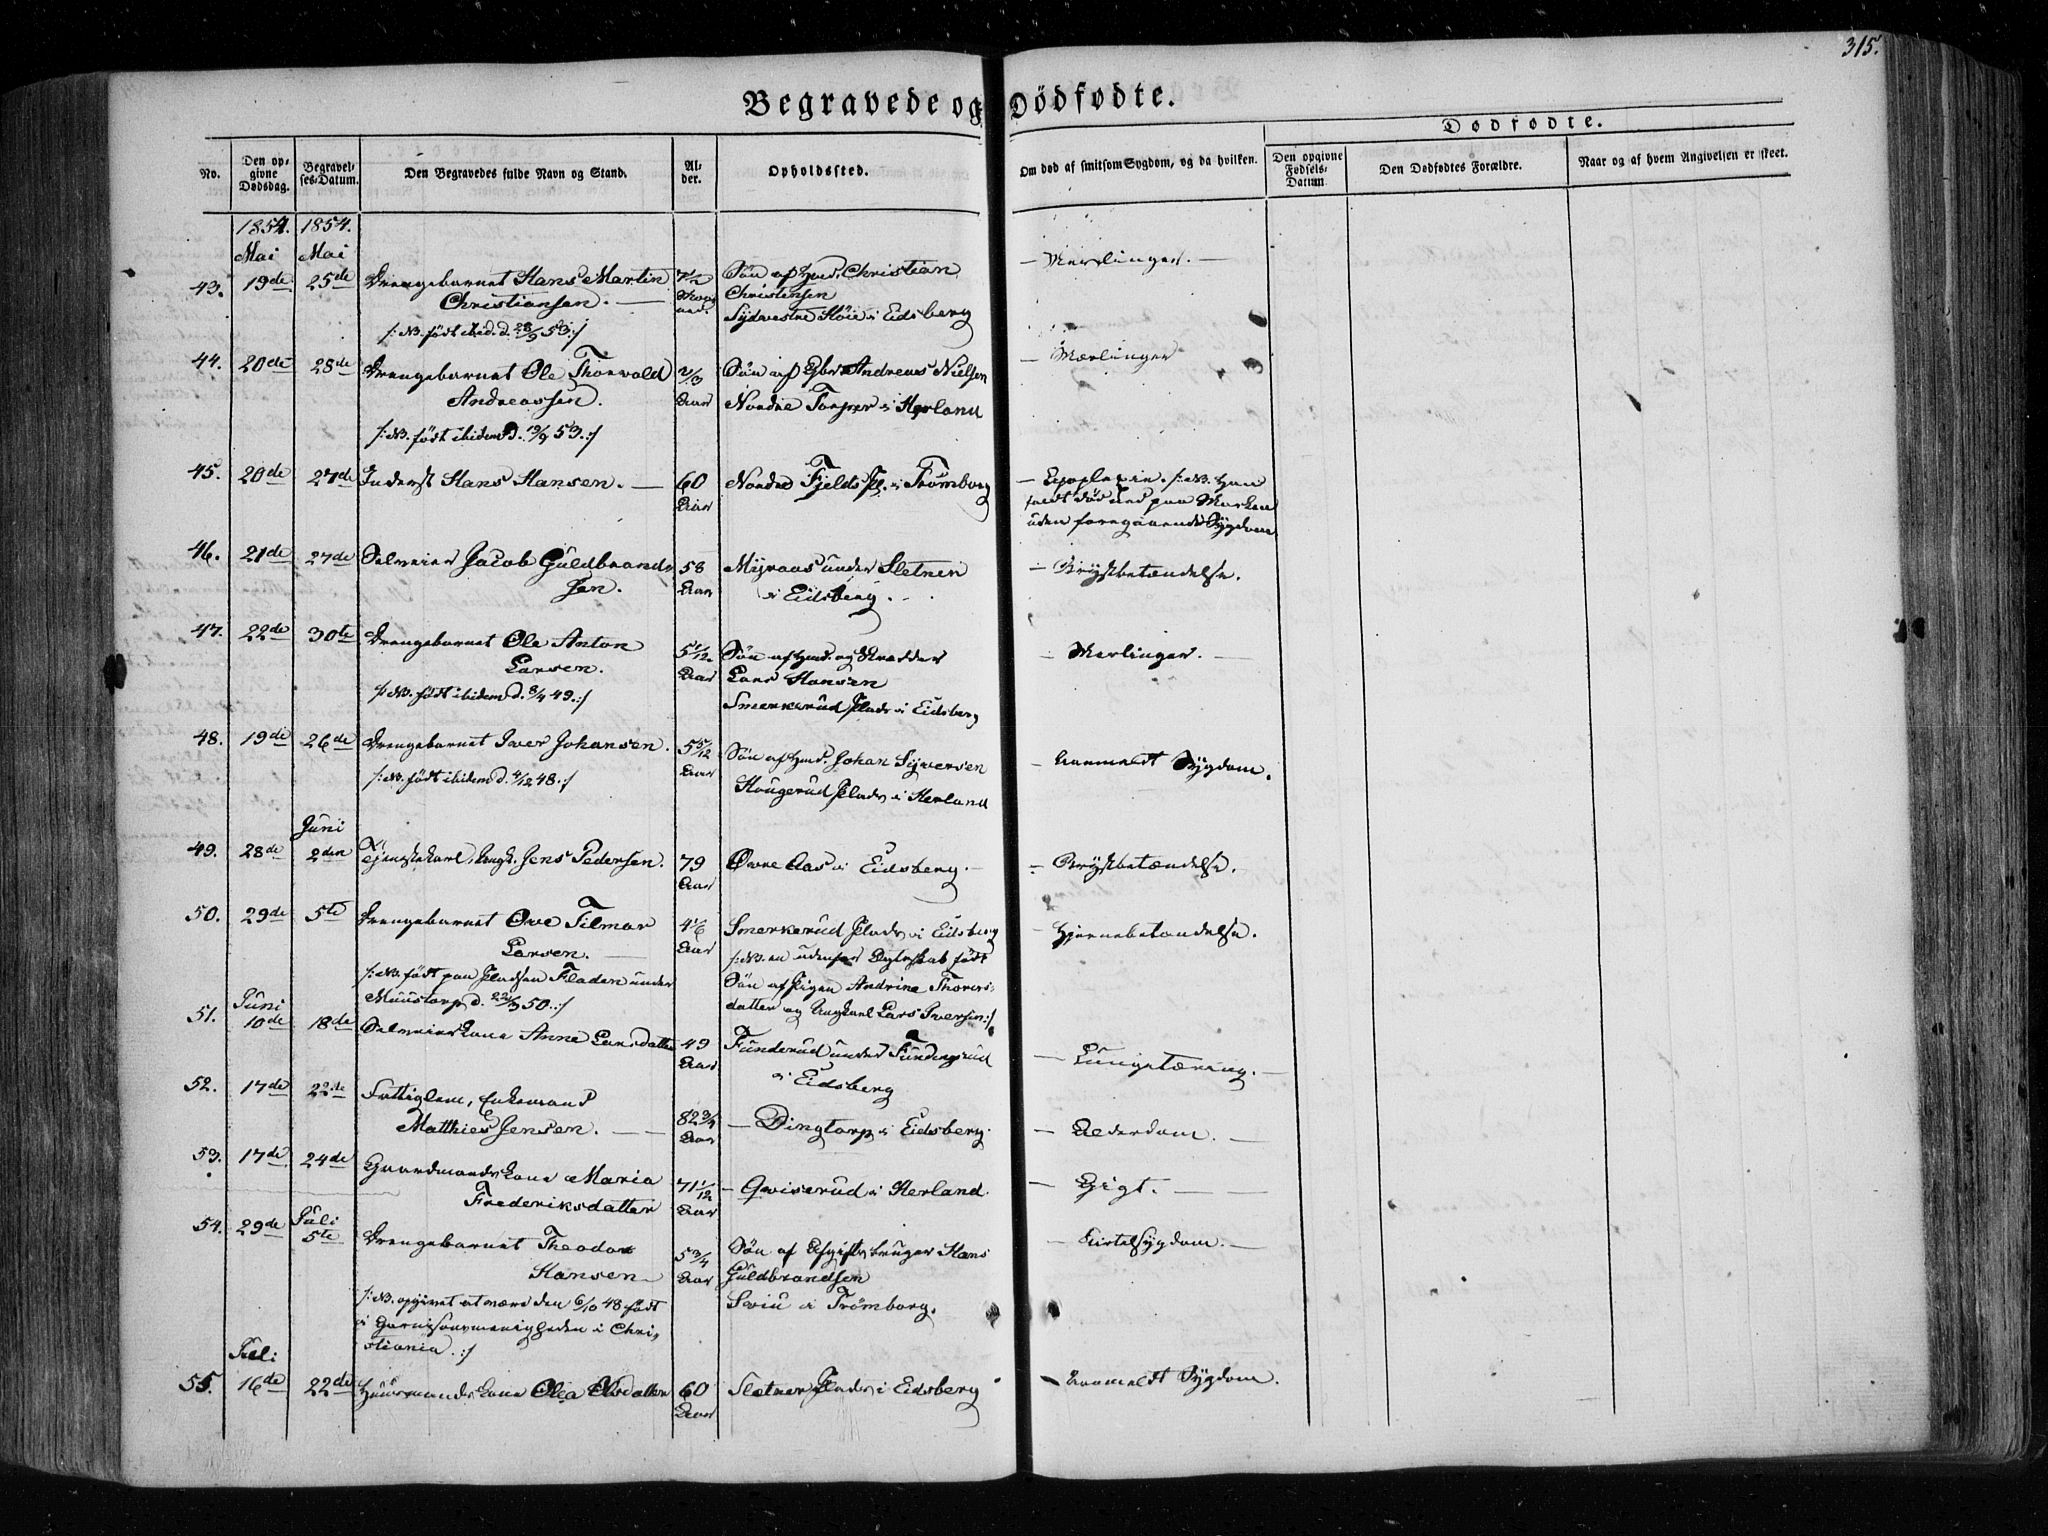 315.
Begravede og Dödfødte.
Dødfødte.
No.
Den opgivne Dødsdag.
Begravelses-Datum.
Den Begravedes fulde Navn og Stand.
Alder.
Opholdssted.
Om død af smitsom Sygdom, og da hvilken.
Den opgivne Fødsels-Datum
Den Dødfødtes Forældre.
Naar og af hvem Angivelsen er skeet.
1854. 1854.
Mai Mai
43. 19de 25de Drengebarnet Hans Martin
Christiansen. —
/: NB. født ibid. d. 28/9 53 :/
7 1/2
Søn af Hmd. Christian
Christensen
Sydvestre Höie i Eidsberg
— Mæslinger. —
44. 20de 28de Drengebarnet Ole Thorvald
Andreassen.
/: NB. født ibidem d. 19/9 53. :/
2/3
Aar
Søn af Andreas Nielsen
Nordre i Herland
— Mæslinger
45. 20de 27de Inderst Hans Hansen. —
60
Aar
Nordre Fjelds Pl. i Trömborg
— Apoplexie. /: NB. Han
faldt død ned paa Marken
uden foregaaende Sygdom
46. 21de 27de Selveier Jacob Guldbrands
sen.
58
Aar
Myraas under Sletner
i Eidsberg.
— Brystbetændelse.
47. 22de 30te Drengebarnet Ole Anton
Larsen.
/: NB. født ibidem d. 8/4 49. :/
5 1/12
Aar
Søn af Hmd. og Skrædder
Lars Hansen
Smerkerud Plads i Eidsberg
— Mæslinger. —
48. 19de 26de Drengebarnet Iver Johansen.
/: NB. født ibidem d. 4/12 48. :/
5 5/12
Aar
Søn af Hmd. Johan Syversen
Hougerud Plads i Herland
— Uanmeldt Sygdom.
Juni
49. 28de 2den Tjenestekarl, Ungk. Jens Pedersen.
79
Aar
Øvre Aas i Eidsberg. —
— Brystbetændelse.
50. 29de 5te Drengebarnet Ove Tilmar
Larsen. —
/: NB. født paa Pladsen Fladen under
Muustorp d. 22/3 50. :/
4 1/6
Aar
Smerkerud Plads i Eidsberg
/: NB. en udenfor Ægteskab født
Søn af Pigen Andrine Thores-
datter og Ungkarl Lars Iversen :/
— Hjernebetændelse.
Juni
51. 10de 18de Selveierkone Anne Larsdatter
49
Aar
Funderud under Funderud
i Eidsberg
— Lungetæring. —
52. 17de 22de Fattiglem, Enkemand
Matthies Jensen. —
82 3/4
Aar
— Dingtorp i Eidsberg.
— Alderdom. —
53. 17de 24de Gaardmandskone Maria
Frederiksdatter
71 1/12
Aar
— Qviserud i Herland.
— Gigt. —
Juli
54. 29de 5te Drengebarnet Theodor
Hansen —
/: NB. opgivet at være den 6/10 48 født
i Garnisonsmenigheden i Chri-
stiania. :/
5 3/4
Aar
Søn af Hans
Guldbrandsen
i Trömborg.
— Kirtelsygdom. —
Juli
55. 16de 22de Huusmandskone Olea Olsdatter
60
Aar
Sletner Plads i Eidsberg
— Uanmeldt Sygdom.